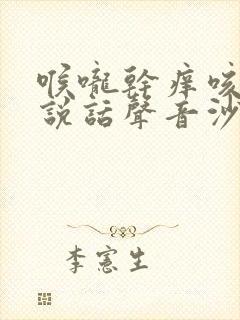 喉嚨幹癢咳
說話聲音沙
李憲生